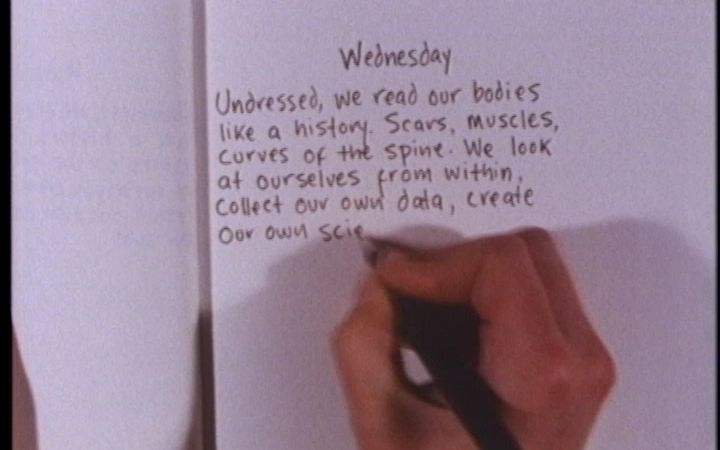 Wednesday
Undressed, we read our bodies
like a history. Scars, muscles,
curves of the spine. We look
at ourselves from within,
collect our own data, create
our own scie